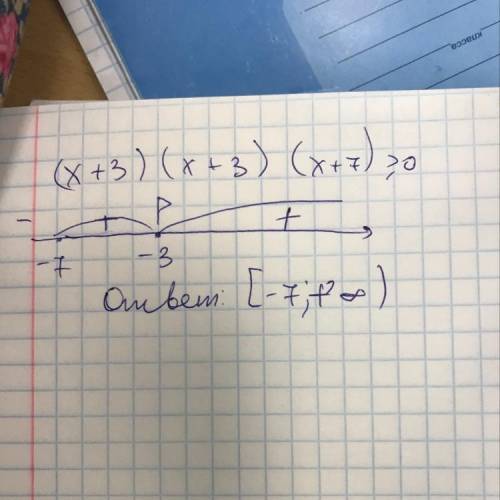 класса
(x+3)(x+3)(x+7)≥0
- + P +
-7 -3
Ответ: [-7;+∞)